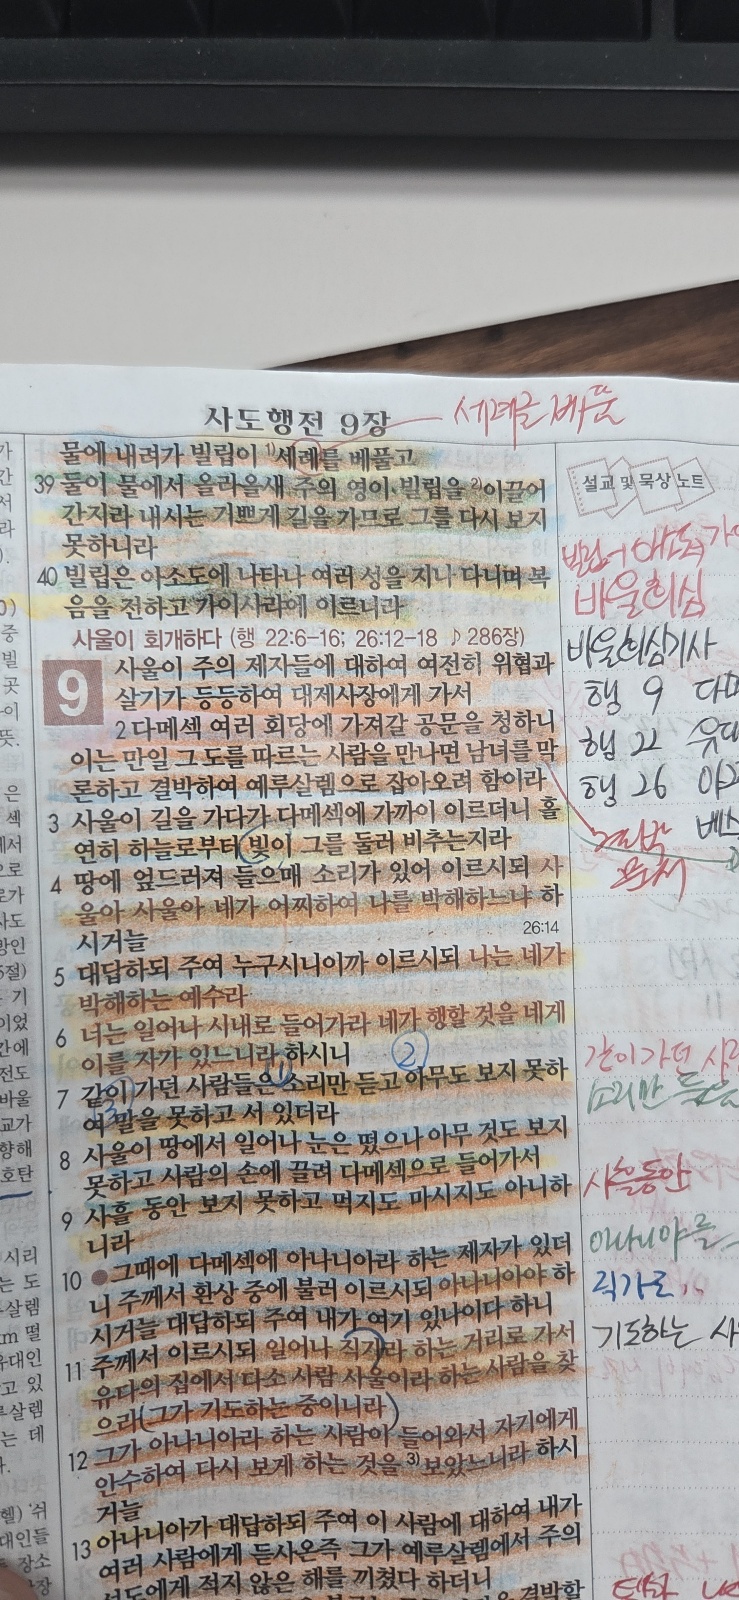 사도행전 9장
세례를 베풂
물에 내려가 빌립이 1)세례를 베풀고
39 둘이 물에서 올라올새 주의 영이 빌립을 2)이끌어
간지라 내시는 기쁘게 길을 가므로 그를 다시 보지
못하니라
40 빌립은 아소도에 나타나 여러 성을 지나 다니며 복
음을 전하고 가이사랴에 이르니라
사울이 회개하다 (행 22:6-16; 26:12-18 ♪286장)
9 사울이 주의 제자들에 대하여 여전히 위협과
살기가 등등하여 대제사장에게 가서
2 다메섹 여러 회당에 가져갈 공문을 청하니
이는 만일 그 도를 따르는 사람을 만나면 남녀를 막
론하고 결박하여 예루살렘으로 잡아오려 함이라
3 사울이 길을 가다가 다메섹에 가까이 이르더니 홀
연히 하늘로부터 빛이 그를 둘러 비추는지라
4 땅에 엎드러져 들으매 소리가 있어 이르시되 사
울아 사울아 네가 어찌하여 나를 박해하느냐 하
시거늘
26:14
5 대답하되 주여 누구시니이까 이르시되 나는 네가
박해하는 예수라
6 너는 일어나 시내로 들어가라 네가 행할 것을 네게
이를 자가 있느니라 하시니
②
①
7 같이 가던 사람들은 소리만 듣고 아무도 보지 못하
여 말을 못하고 서 있더라
8 사울이 땅에서 일어나 눈은 떴으나 아무 것도 보지
못하고 사람의 손에 끌려 다메섹으로 들어가서
9 사흘 동안 보지 못하고 먹지도 마시지도 아니하
니라
10 ●그때에 다메섹에 아나니아라 하는 제자가 있더
니 주께서 환상 중에 불러 이르시되 아나니아야 하
시거늘 대답하되 주여 내가 여기 있나이다 하니
11 주께서 이르시되 일어나 직가라 하는 거리로 가서
유다의 집에서 다소 사람 사울이라 하는 사람을 찾
으라 (그가 기도하는 중이니라)
12 그가 아나니아라 하는 사람이 들어와서 자기에게
안수하여 다시 보게 하는 것을 3)보았느니라 하시
거늘
13 아나니아가 대답하되 주여 이 사람에 대하여 내가
여러 사람에게 듣사온즉 그가 예루살렘에서 주의
성도에게 적지 않은 해를 끼쳤다 하더니
설교 및 묵상 노트
바울회심
바울회심기사
행 9
행 22
행 26
결박
같이 가던
소리만 들음
사흘동안
아나니아를
직가로
기도하는